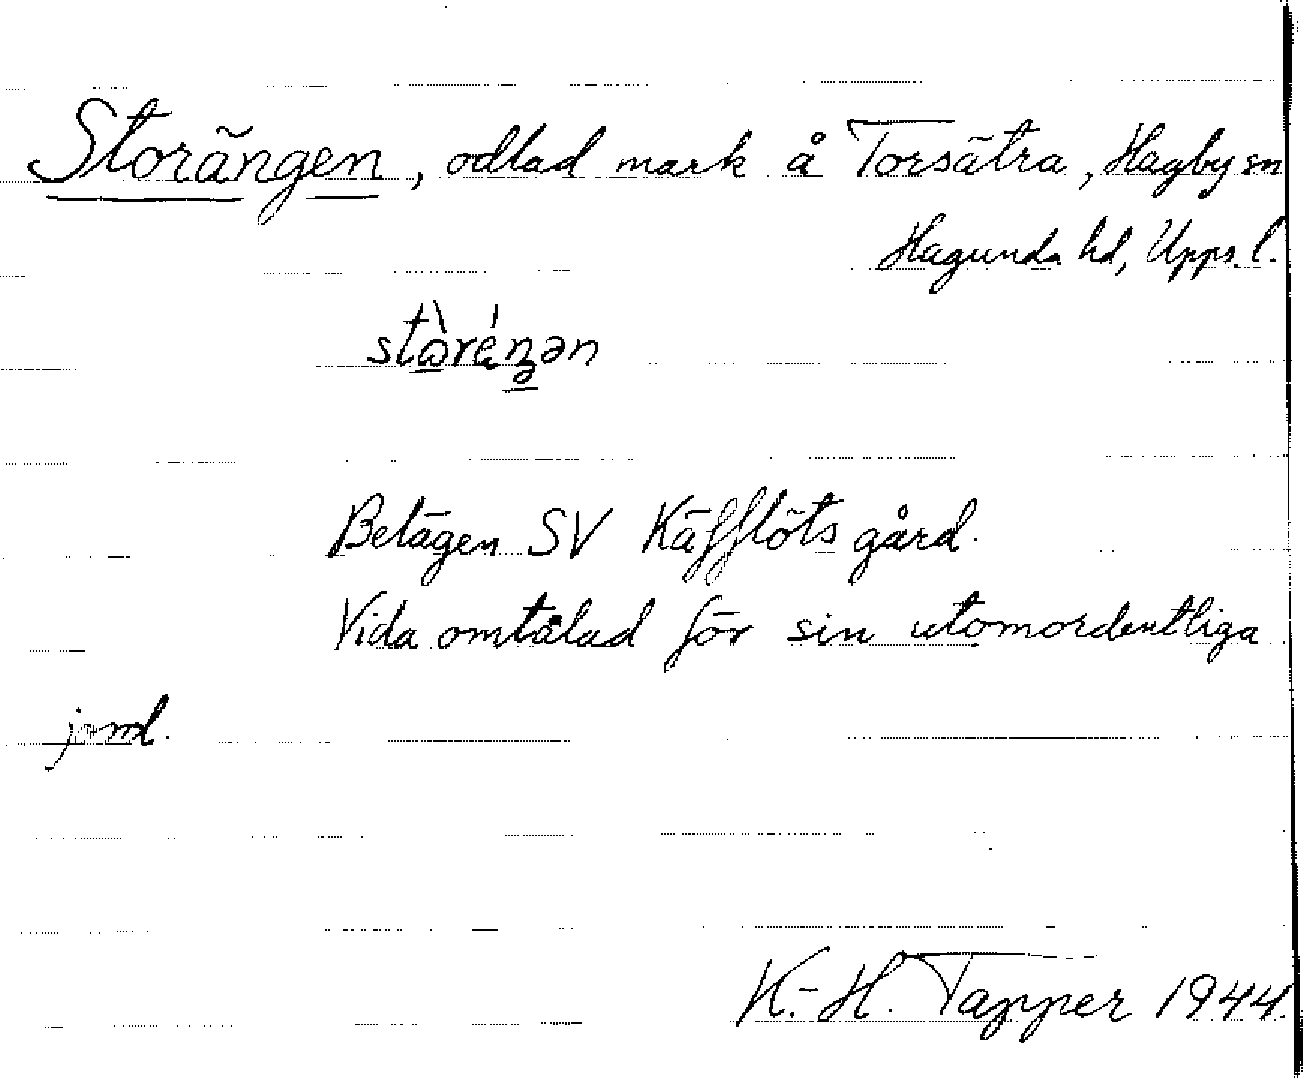 Storängen, odlad mark å Torsätra, Hagby sn
Hagunda hd, Upps. l.
Belägen SV Käfflöts gård.
Vida omtalad för sin utomordentliga
jord.
K.-H. Tapper 1944.